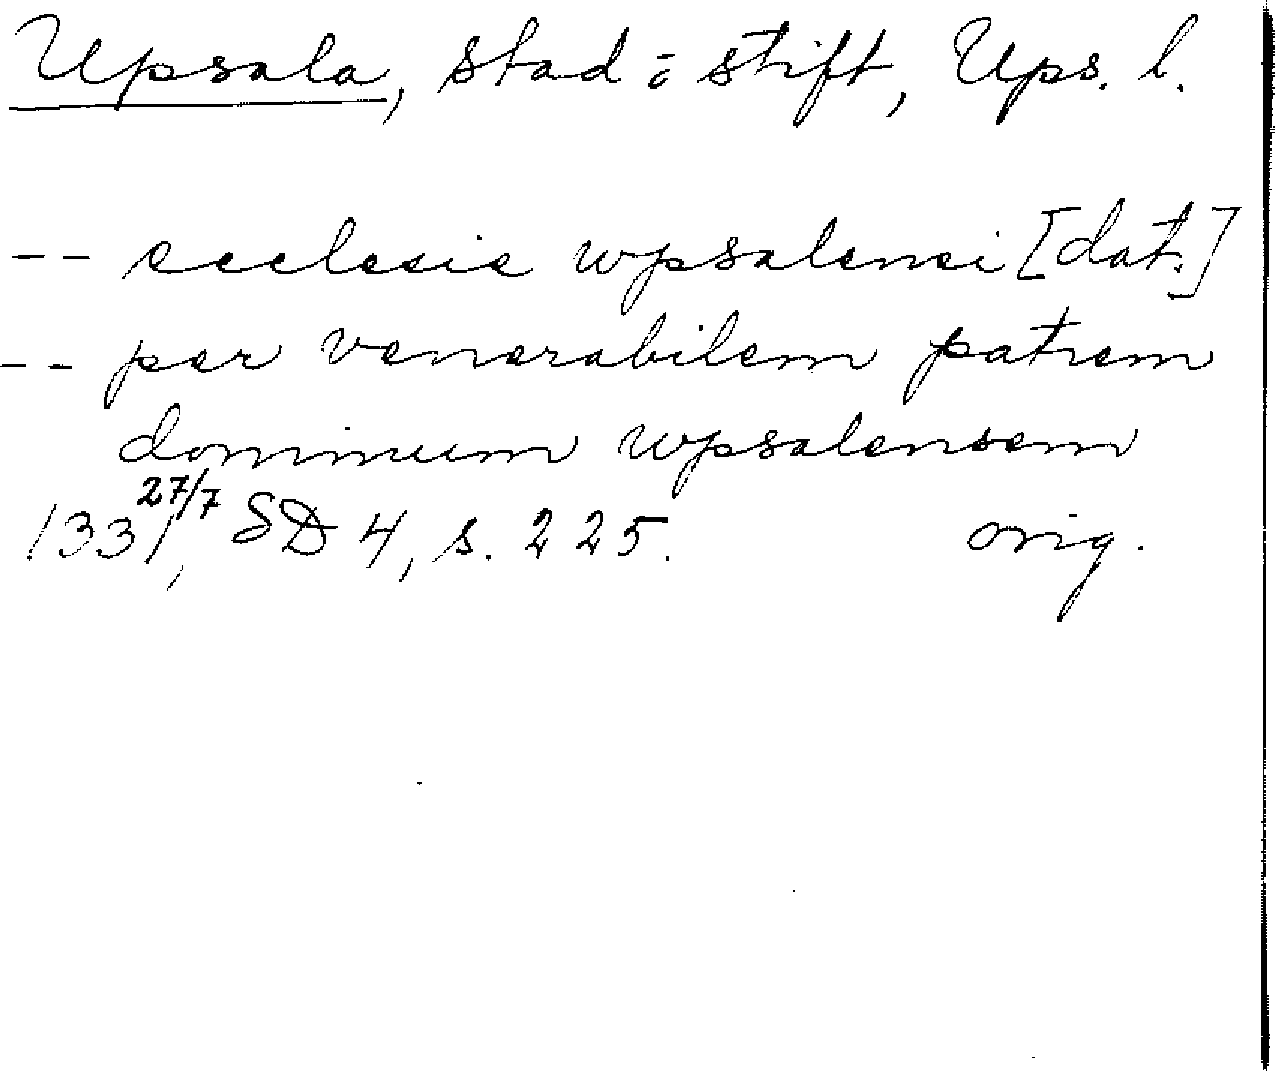 Upsala, stad o. stift, Ups. l.
-- ecclesie wpsalensi [dat.]
-- per venerabilem patrem
dominum wpsalensem
1331 27/7, SD 4, s. 225. orig.